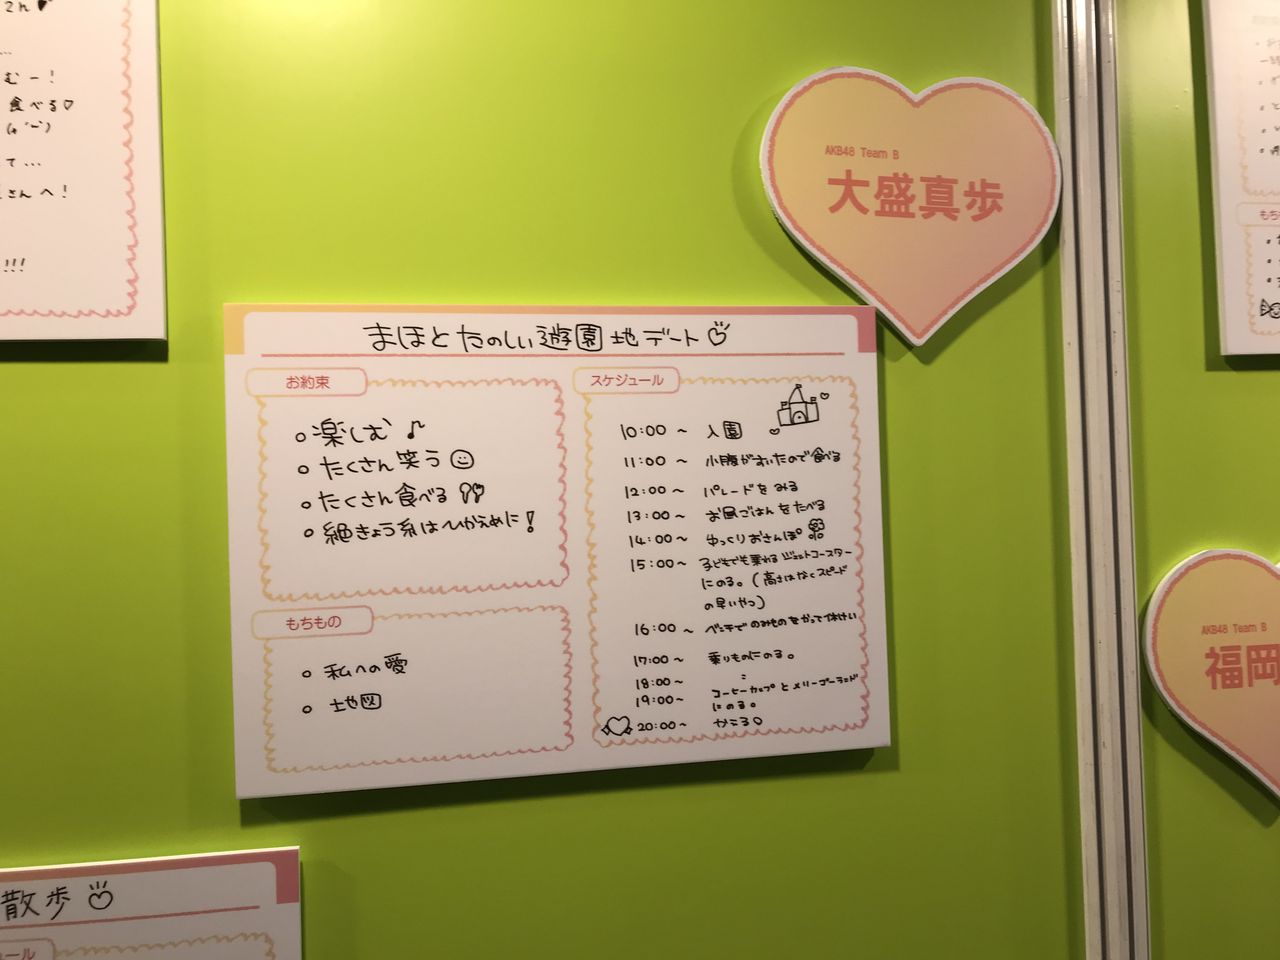 むー!
食べる♡
て…
さんへ!
!!!
AKB48 Team B
大盛真歩
まほとたのしい遊園地デート
お約束
○楽しむ♪
○たくさん笑う
○たくさん食べる
○絶きょう系はひかえめに!
もちもの
○ 私への愛
○ 地図
スケジュール
10:00 ~ 入園
11:00 ~ 小腹がすいたので食べる
12:00 ~ パレードをみる
13:00 ~ お昼ごはんをたべる
14:00 ~ ゆっくりおさんぽ
15:00 ~ 子どもでも乗れるジェットコースター
にのる。(高さはなくスピード
の早いやつ)
16:00 ~ ベンチでのみものをかって休けい
17:00 ~ 乗りものにのる。
18:00 ~ :
19:00 ~ コーヒーカップとメリーゴーランド
にのる。
20:00 ~ かえる
AKB48 Team B
福岡
散歩
ール
もち